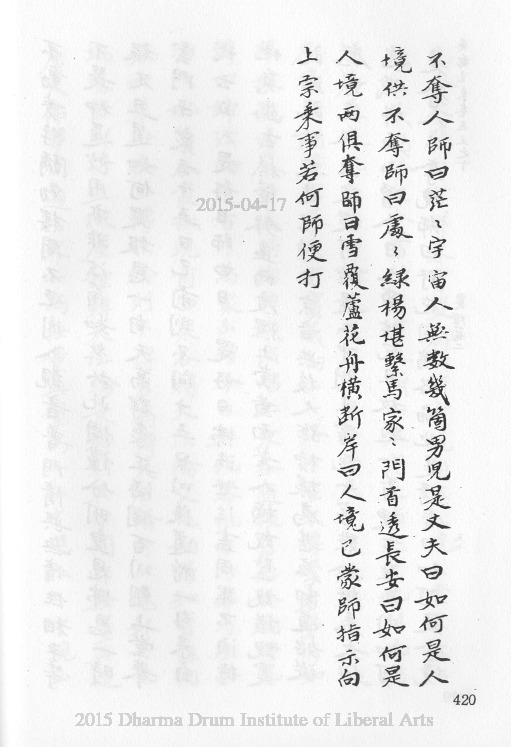 不奪人師曰茫〻宇宙人無数幾箇男児是丈夫曰如何是人
境俱不奪師曰處〻緑楊堪繫馬家〻門首透長安曰如何是
人境两俱奪師曰雪覆蘆花舟橫断岸曰人境已蒙師指示向
上宗乗事若何師便打
2015-04-17
420
2015 Dharma Drum Institute of Liberal Arts